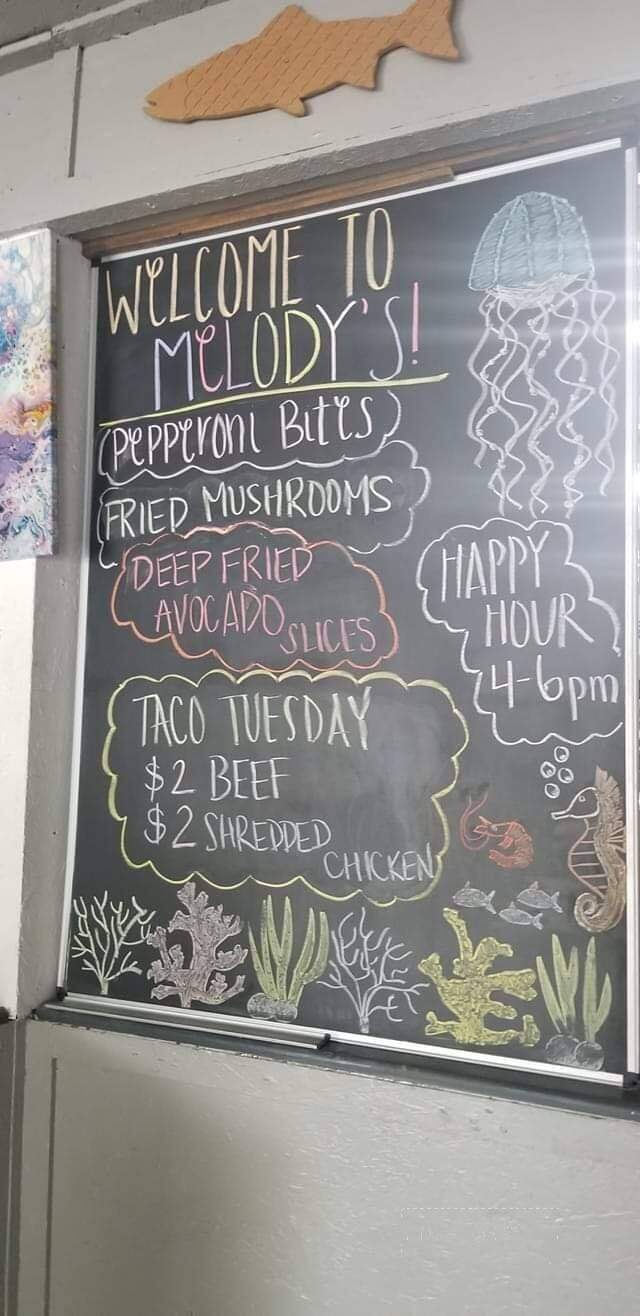 WELCOME TO
MELODY'S!
PEPPERONI BITES
FRIED MUSHROOMS
DEEP FRIED
AVOCADO
SLICES
HAPPY
HOUR
4-6pm
TACO TUESDAY
$2 BEEF
$2 SHREDDED
CHICKEN